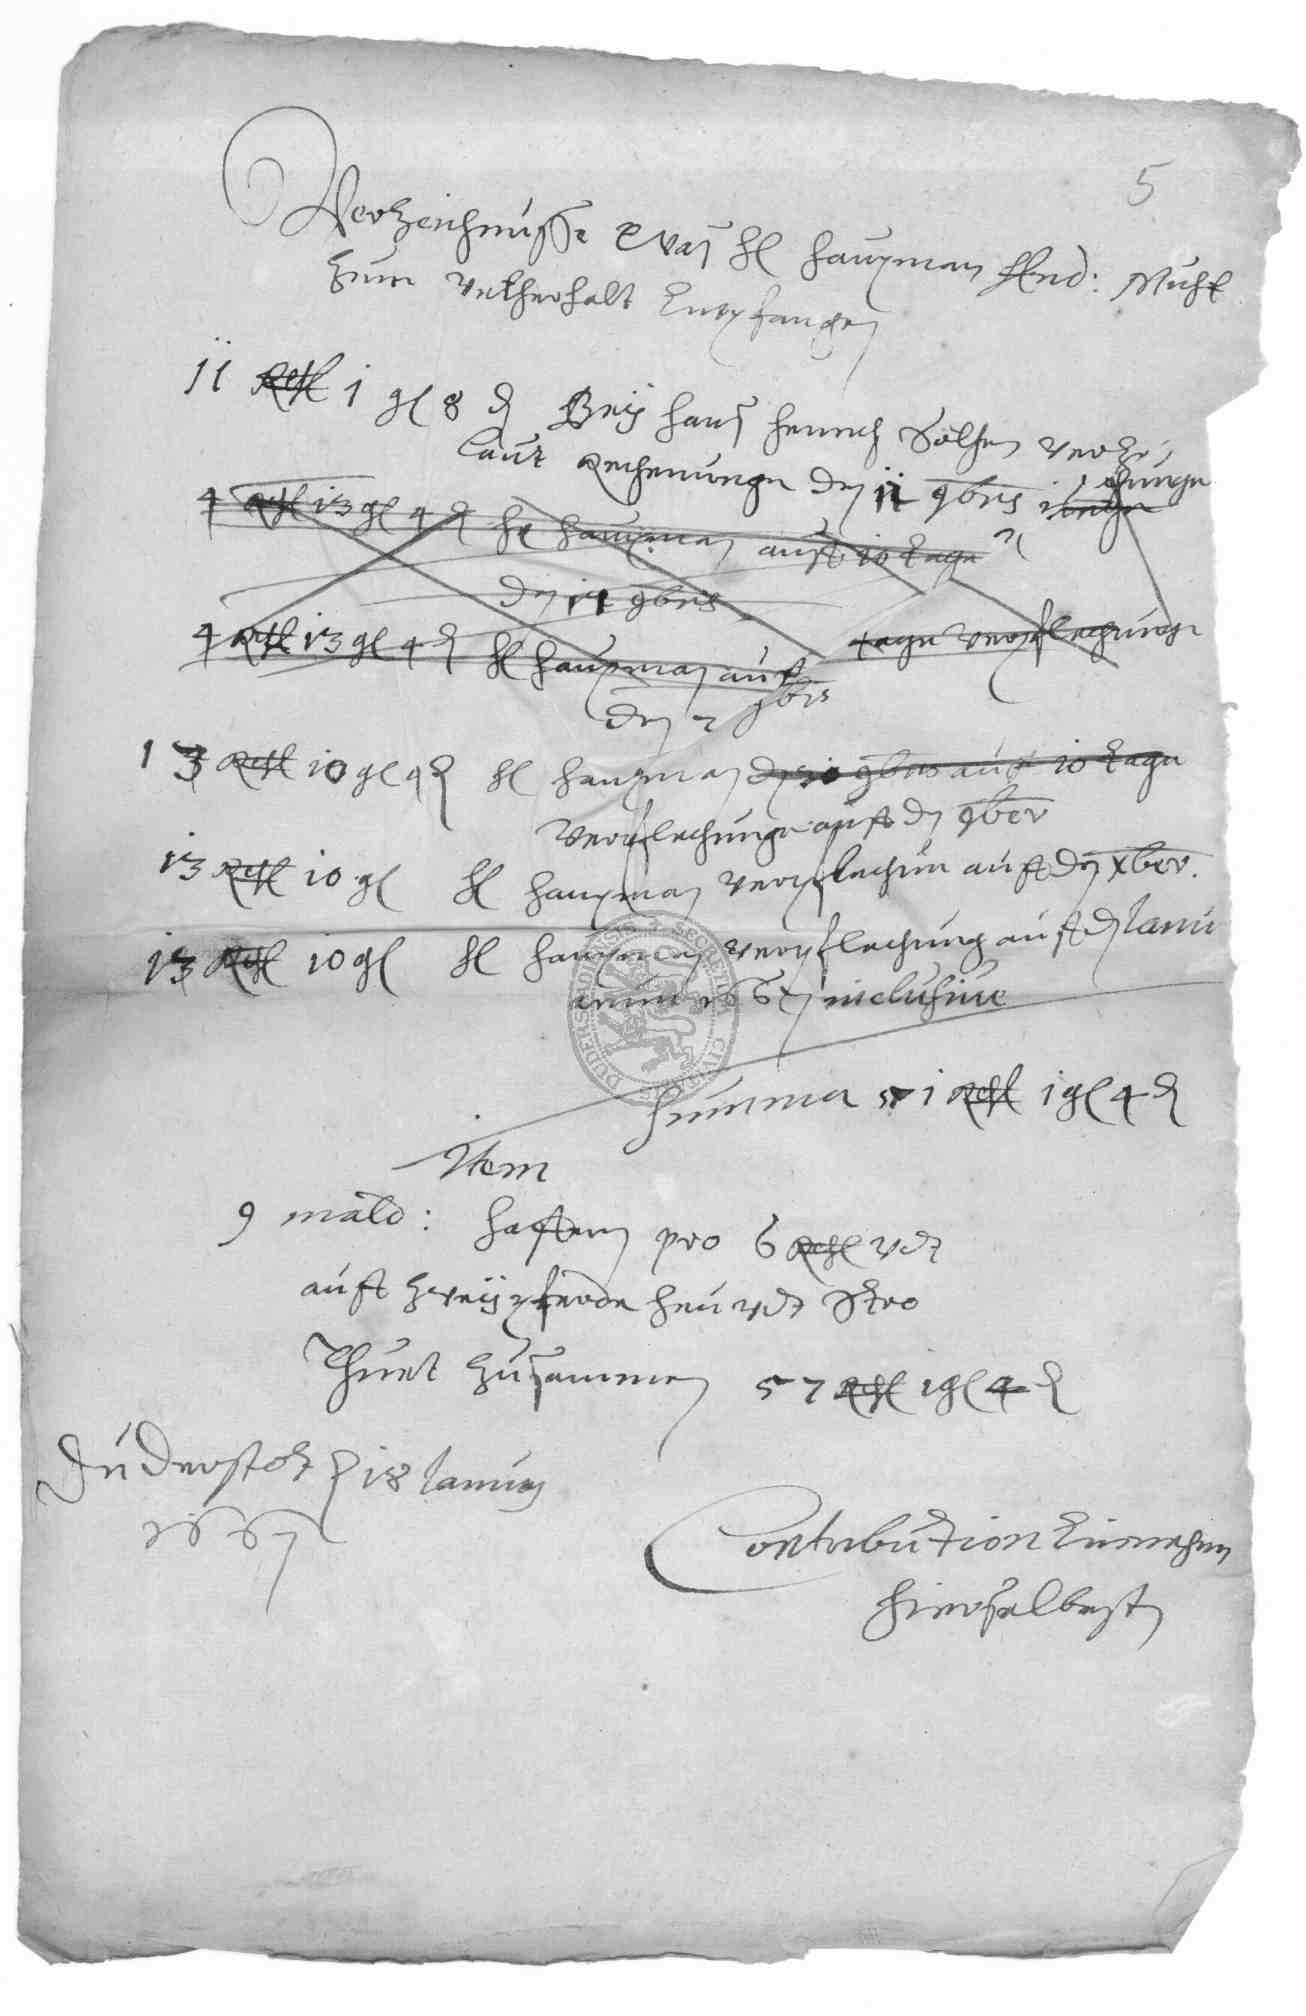 5
Verzeichnusse Was H haupman And: Muhl
Zum Vntherhalt Empfangen
11 Rthl 1 gl 8 d Bey hans henrich verzehrunge
laut Rechenunge den 11 9bris
4 Rthl 13 gl 4 d H haupman auff 10 tage
den 11 9bris
4 Rthl 13 gl 4 d H haupman auff tage Verpflechunge
den 9bris
13 Rthl 10 gl 4 d H haupman den 10 9bris auff 10 tage
Verpflechunge auff den 9ber
13 Rthl 10 gl H haupman Verpflechun auff den Xber.
13 Rthl 10 gl H haupman verpflechung auff den Janu
arium 1667 inclusiue
DUDERSTADIENSIS SECRETUM CIVITATIS
Summa 51 Rthl 1 gl 4 d
Item
9 mald: haffern pro 6 Rthl vdt
auff zweij pferde heu vdt Stro
Thuet zusammen 57 Rthl 1 gl 4 d
Duderstat d 18 Januarij
1667
Contribution Einnehmer
hierselbest